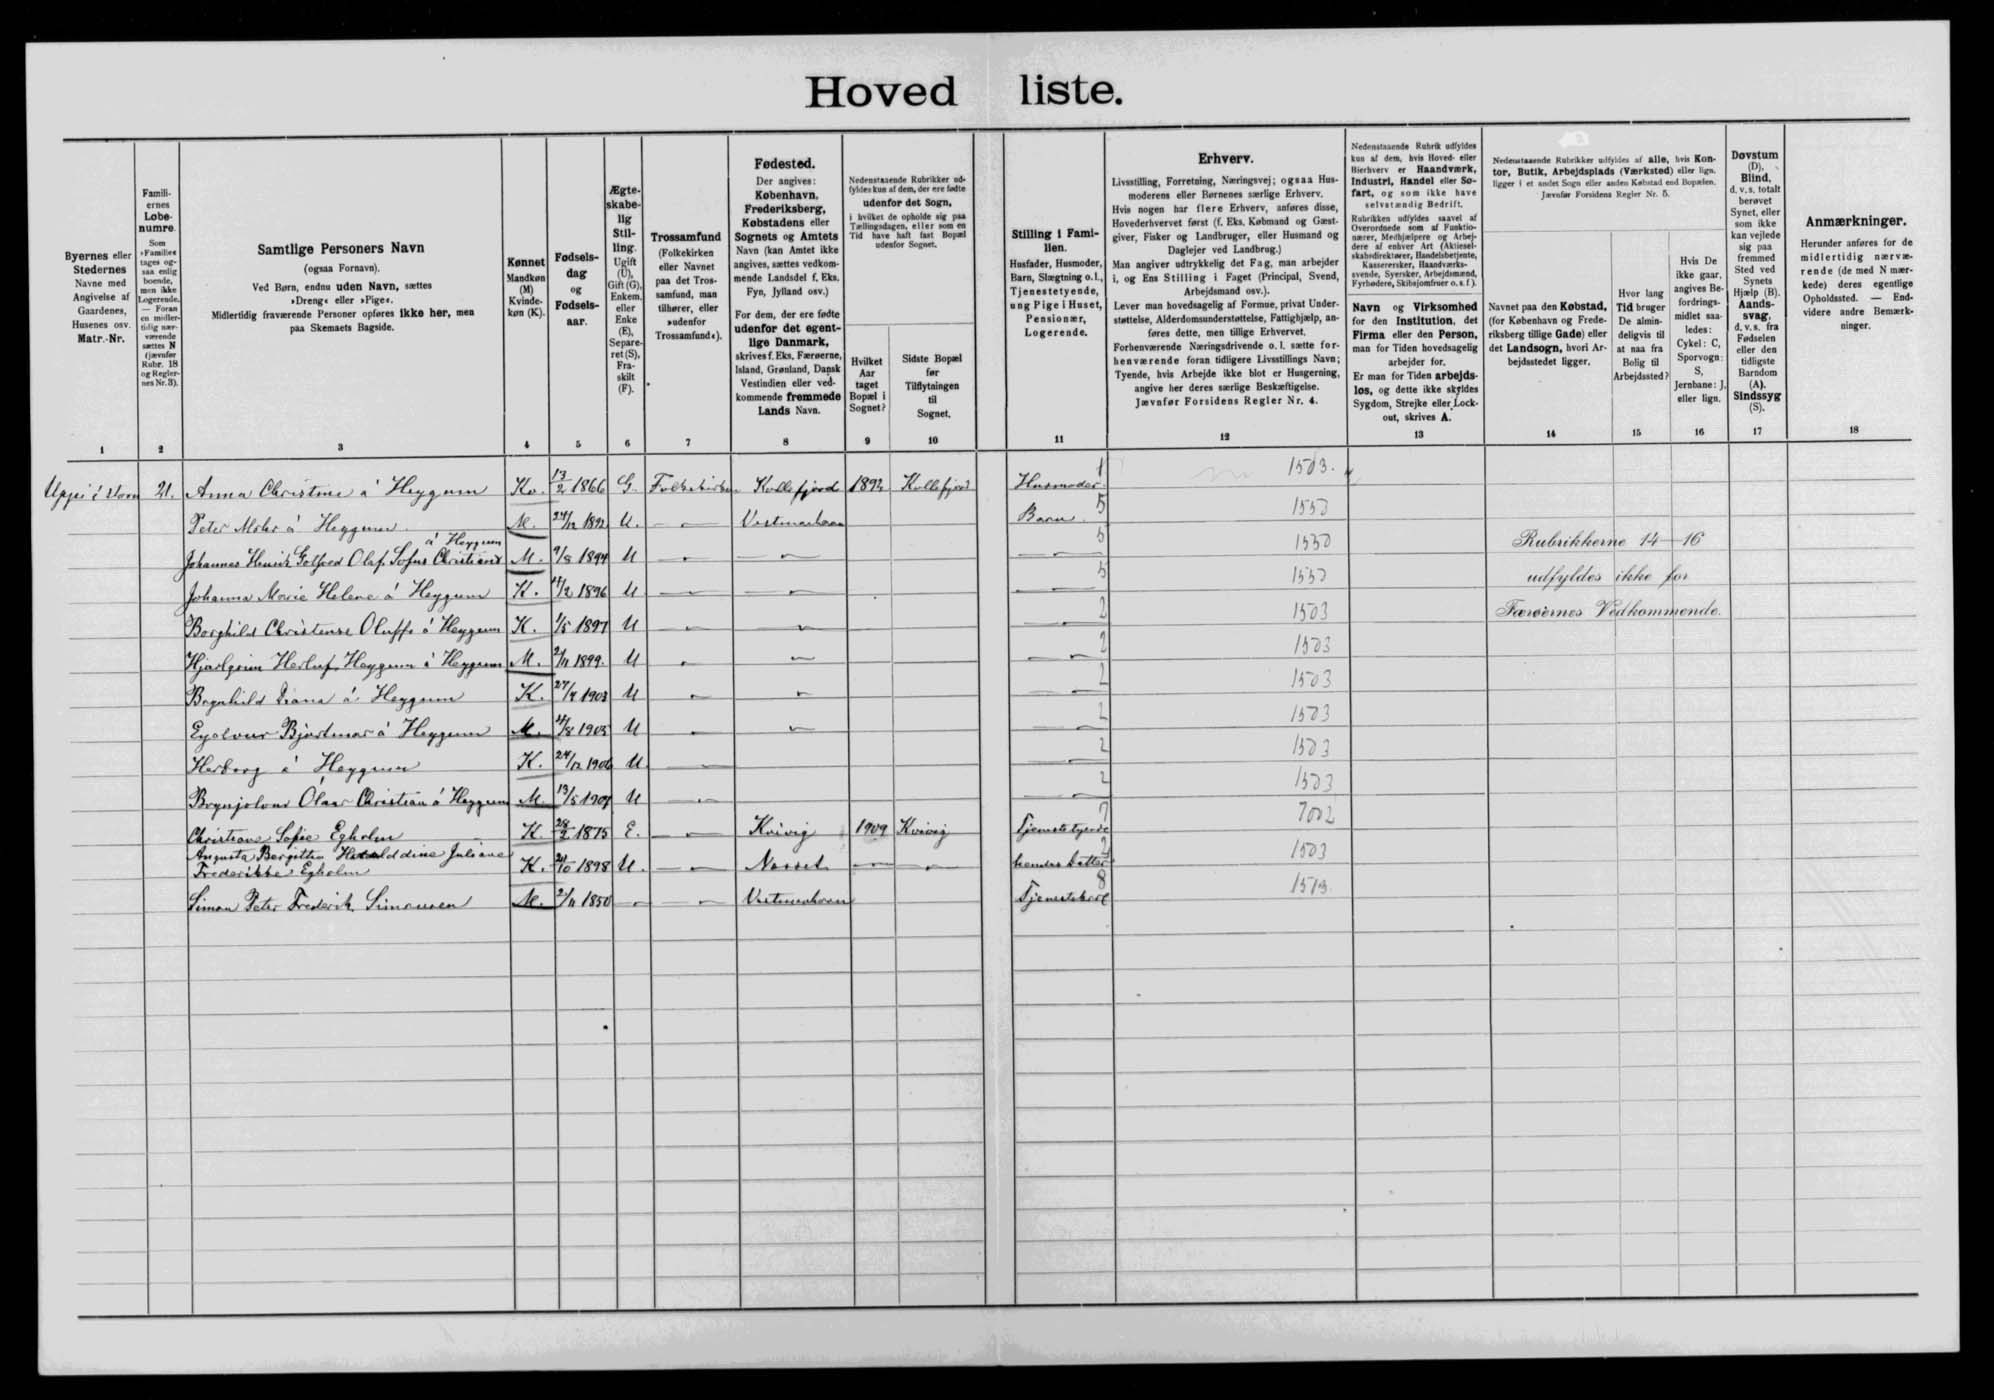 Hovedliste.
Byernes eller Stedernes Navne med Angivelse af Gaardenes, Husenes osv. Matr.-Nr.
Familiernes Løbenumre. Som »Familie« tages ogsaa enlig boende, men ikke Logerende. — Foran en midlertidig nærværende sættes N (jævnfør Rubr. 18 og Reglernes Nr. 3).
Samtlige Personers Navn
(ogsaa Fornavn).
Ved Børn, endnu uden Navn, sættes
»Dreng« eller »Pige«.
Midlertidig fraværende Personer opføres ikke her, men
paa Skemaets Bagside.
Kønnet Mandkøn (M) Kvindekøn (K).
Fødselsdag og Fødselsaar.
Ægteskabelig Stilling. Ugift (U), Gift (G), Enkem. eller Enke (E), Separeret (S), Fraskilt (F).
Trossamfund (Folkekirken eller Navnet paa det Trossamfund, man tilhører, eller »udenfor Trossamfund«).
Fødested.
Der angives: København, Frederiksberg, Købstadens eller Sognets og Amtets Navn (kan Amtet ikke angives, sættes vedkommende Landsdel f. Eks. Fyn, Jylland osv.)
For dem, der ere fødte udenfor det egentlige Danmark, skrives f. Eks. Færøerne, Island, Grønland, Dansk Vestindien eller vedkommende fremmede Lands Navn.
Nedenstaaende Rubrikker udfyldes kun af dem, der ere fødte udenfor det Sogn, i hvilket de opholde sig paa Tællingsdagen, eller som en Tid have haft fast Bopæl udenfor Sognet.
Hvilket Aar taget Bopæl i Sognet?
Sidste Bopæl før Tilflytningen til Sognet.
Stilling i Familien.
Husfader, Husmoder, Barn, Slægtning o. l., Tjenestetyende, ung Pige i Huset, Pensionær, Logerende.
Erhverv.
Livsstilling, Forretning, Næringsvej; ogsaa Husmoderens eller Børnenes særlige Erhverv.
Hvis nogen har flere Erhverv, anføres disse, Hovederhvervet først (f. Eks. Købmand og Gæstgiver, Fisker og Landbruger, eller Husmand og Daglejer ved Landbrug.)
Man angiver udtrykkelig det Fag, man arbejder i, og Ens Stilling i Faget (Principal, Svend, Arbejdsmand osv.).
Lever man hovedsagelig af Formue, privat Understøttelse, Alderdomsunderstøttelse, Fattighjælp, anføres dette, men tillige Erhvervet.
Forhenværende Næringsdrivende o. l. sætte forhenværende foran tidligere Livsstillings Navn; Tyende, hvis Arbejde ikke blot er Husgerning, angive her deres særlige Beskæftigelse.
Jævnfør Forsidens Regler Nr. 4.
Nedenstaaende Rubrik udfyldes kun af dem, hvis Hoved- eller Bierhverv er Haandværk, Industri, Handel eller Søfart, og som ikke have selvstændig Bedrift.
Rubrikken udfyldes saavel af Overordnede som af Funktionærer, Medhjælpere og Arbejdere af enhver Art (Aktieselskabsdirektører, Handelsbetjente, Kassererske, Haandværkssvende, Syersker, Arbejdsmænd, Fyrbødere, Skibsjomfruer o. s. f.).
Navn og Virksomhed for den Institution, det Firma eller den Person, man for Tiden hovedsagelig arbejder for.
Er man for Tiden arbejdsløs, og dette ikke skyldes Sygdom, Strejke eller Lockout, skrives A.
Nedenstaaende Rubrikker udfyldes af alle, hvis Kontor, Butik, Arbejdsplads (Værksted) eller lign. ligger i et andet Sogn eller anden Købstad end Bopælen.
Jævnfør Forsidens Regler Nr. 5.
Navnet paa den Købstad, (for København og Frederiksberg tillige Gade) eller det Landsogn, hvori Arbejdsstedet ligger.
Hvor lang Tid bruger De almindeligvis til at naa fra Bolig til Arbejdssted?
Hvis De ikke gaar, angives Befordringsmidlet saaledes: Cykel: C, Sporvogn: S, Jernbane: J, eller lign.
Døvstum (D), Blind, d. v. s. totalt berøvet Synet, eller som ikke kan vejlede sig paa fremmed Sted ved Synets Hjælp (B). Aandssvag, d. v. s. fra Fødselen eller den tidligste Barndom (A). Sindssyg (S).
Anmærkninger.
Herunder anføres for de midlertidig nærværende (de med N mærkede) deres egentlige Opholdssted. — Endvidere andre Bemærkninger.
1 2 3 4 5 6 7 8 9 10 11 12 13 14 15 16 17 18
21. Anna Christine á Heygum Kv. 13/2 1866 G. Folkekirken Kollefjord 1892 Kollefjord Husmoder 1 1503.
Peter Mohr á Heygum M. 24/12 1892 U. Vestmanhavn Barn 5 1550
á Heygum
Johannes Henrik Olaf Sofus Christian M. 9/8 1894 U 5 1550 Rubrikkerne 14-16
Johanna Marie Helene á Heygum K. 1896 U 5 1550 udfyldes ikke for
Borghild Christense Oluffa á Heygum K. 1/5 1897 U 2 1503 Færøernes Vedkommende.
Hjarlgrim Herluf Heygum á Heygum M. 2/11 1899. U 2 1503
Brynhild Diana á Heygum K. 1903 U 2 1503
Eyelvur Bjartmar á Heygum M. 1905 U 2 1503
Herborg á Heygum K. 24/12 1906 U. 2 1503
Brynjolvur Ólavur Christian á Heygum M. 13/5 U 2 1503
Christiane Sofie Egholm K. 28/2 1875 E. Kvivig 1909 Kvivig Tjenestetyende 7 7002
Augusta Bergitta Haralddine Juliane
Frederikke Egholm K. 1898 U. Norset hendes Datter 2 1503
Simon Peter Frederik Simonsen M. 2/11 1850 Vestmanhavn Tjenestekarl 8 1513.